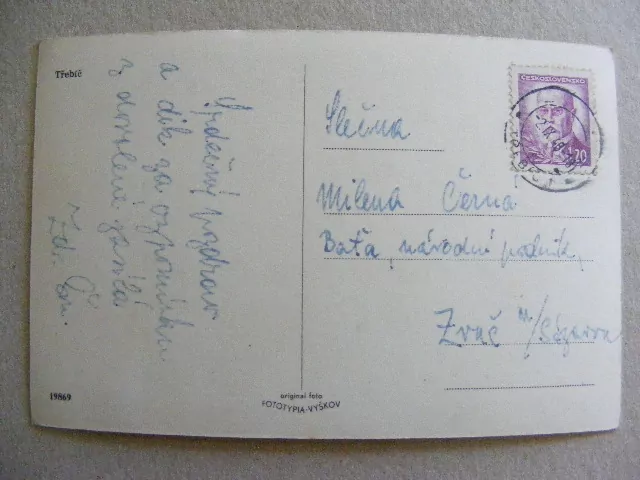 Třebíč
Srdečný pozdrav
a dík za vzpomínku
z dovolené zasílá
Zd. Čer.
ČESKOSLOVENSKO
1.20
Slečna
Milena Černá
Baťa, národní podnik,
Zruč n/Sázavou
19869
original foto
FOTOTYPIA-VYŠKOV